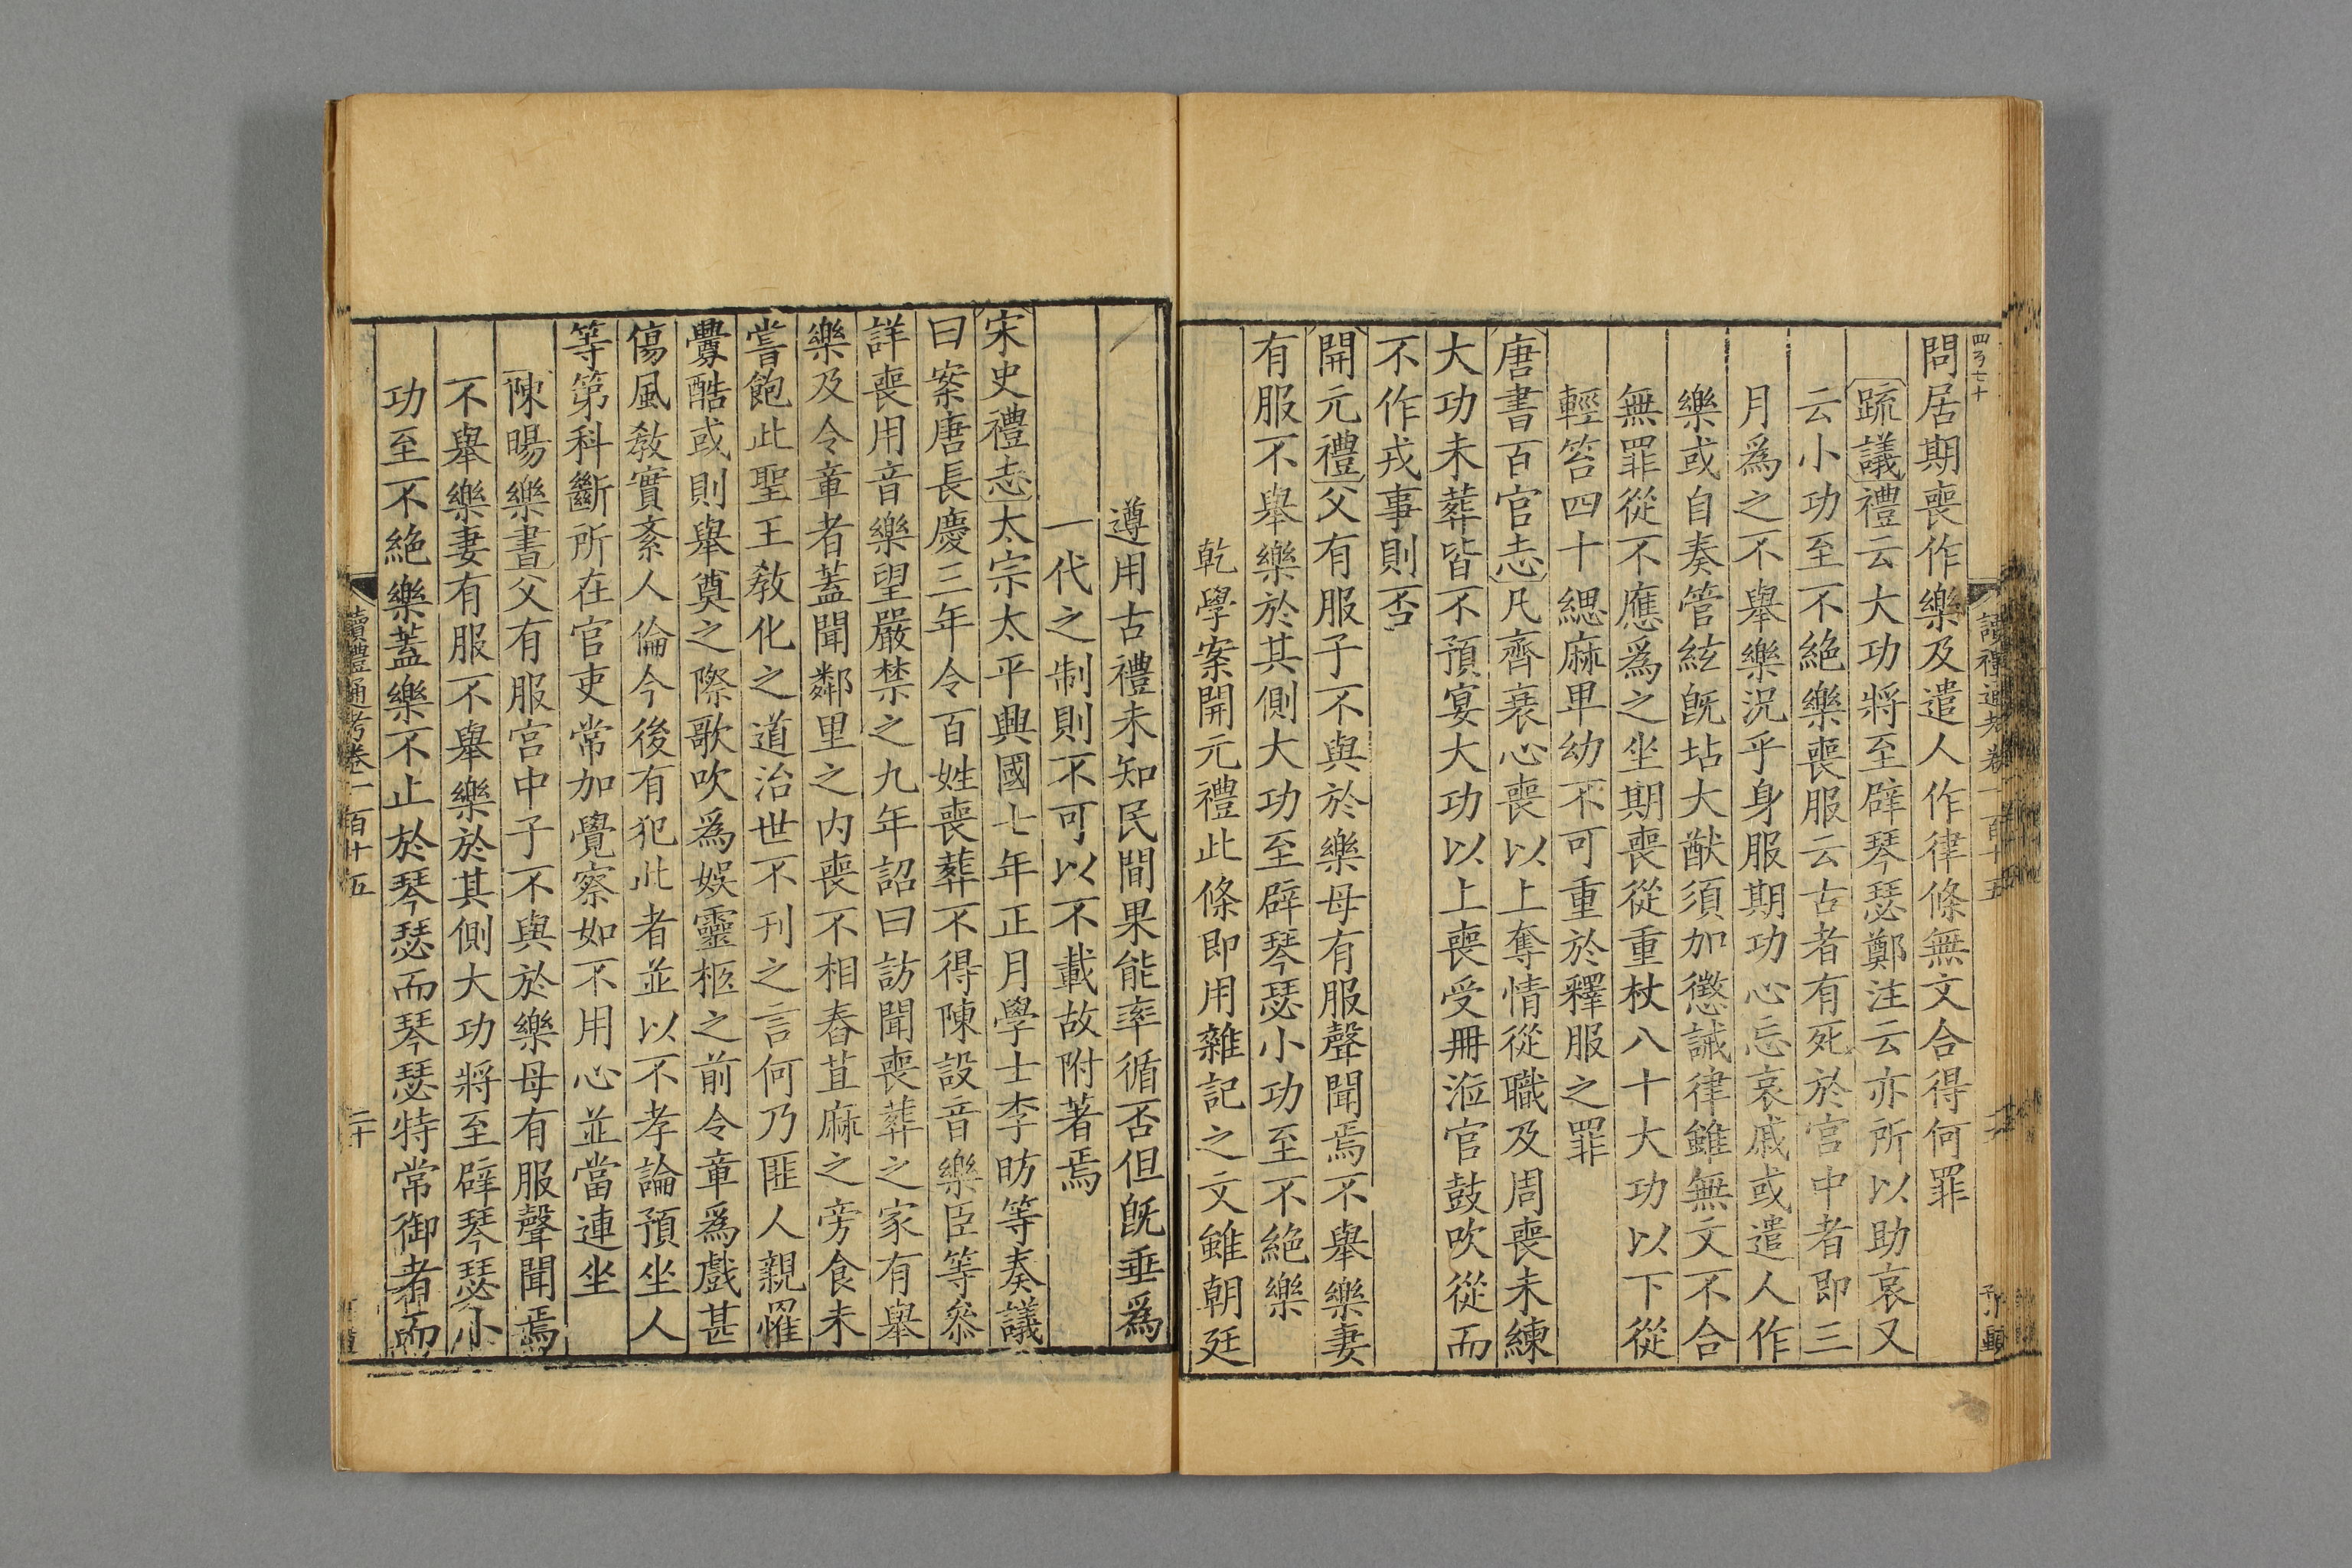 問居期喪作樂及遣人作律條無文合得何罪
疏議禮云大功將至辟琴瑟鄭注云亦所以助哀又
云小功至不絶樂喪服云古者有死於宮中者即三
月爲之不舉樂況乎身服期功心忘哀戚或遣人作
樂或自奏管絃旣玷大猷須加懲誡律雖無文不合
無罪從不應爲之坐期喪從重杖八十大功以下從
輕笞四十緦麻卑幼不可重於釋服之罪
唐書百官志凡齊衰心喪以上奪情從職及周喪未練
大功未葬皆不預宴大功以上喪受冊涖官鼓吹從而
不作戎事則否
開元禮父有服子不與於樂母有服聲聞焉不舉樂妻
有服不舉樂於其側大功至辟琴瑟小功至不絶樂
乾學案開元禮此條即用雜記之文雖朝廷
遵用古禮未知民間果能率循否但旣垂爲
一代之制則不可以不載故附著焉
宋史禮志太宗太平興國七年正月學士李昉等奏議
曰案唐長慶三年令百姓喪葬不得陳設音樂臣等叅
詳喪用音樂望嚴禁之九年詔曰訪聞喪葬之家有舉
樂及令章者蓋聞鄰里之内喪不相舂苴麻之旁食未
嘗飽此聖王敎化之道治世不刊之言何乃匪人親罹
釁酷或則舉奠之際歌吹爲娛靈柩之前令章爲戲甚
傷風敎實紊人倫今後有犯此者並以不孝論預坐人
等第科斷所在官吏常加覺察如不用心並當連坐
陳暘樂書父有服宮中子不與於樂母有服聲聞焉
不舉樂妻有服不舉樂於其側大功將至辟琴瑟小
功至不絶樂蓋樂不止於琴瑟而琴瑟特常御者而
讀禮通考卷一百十五 二十